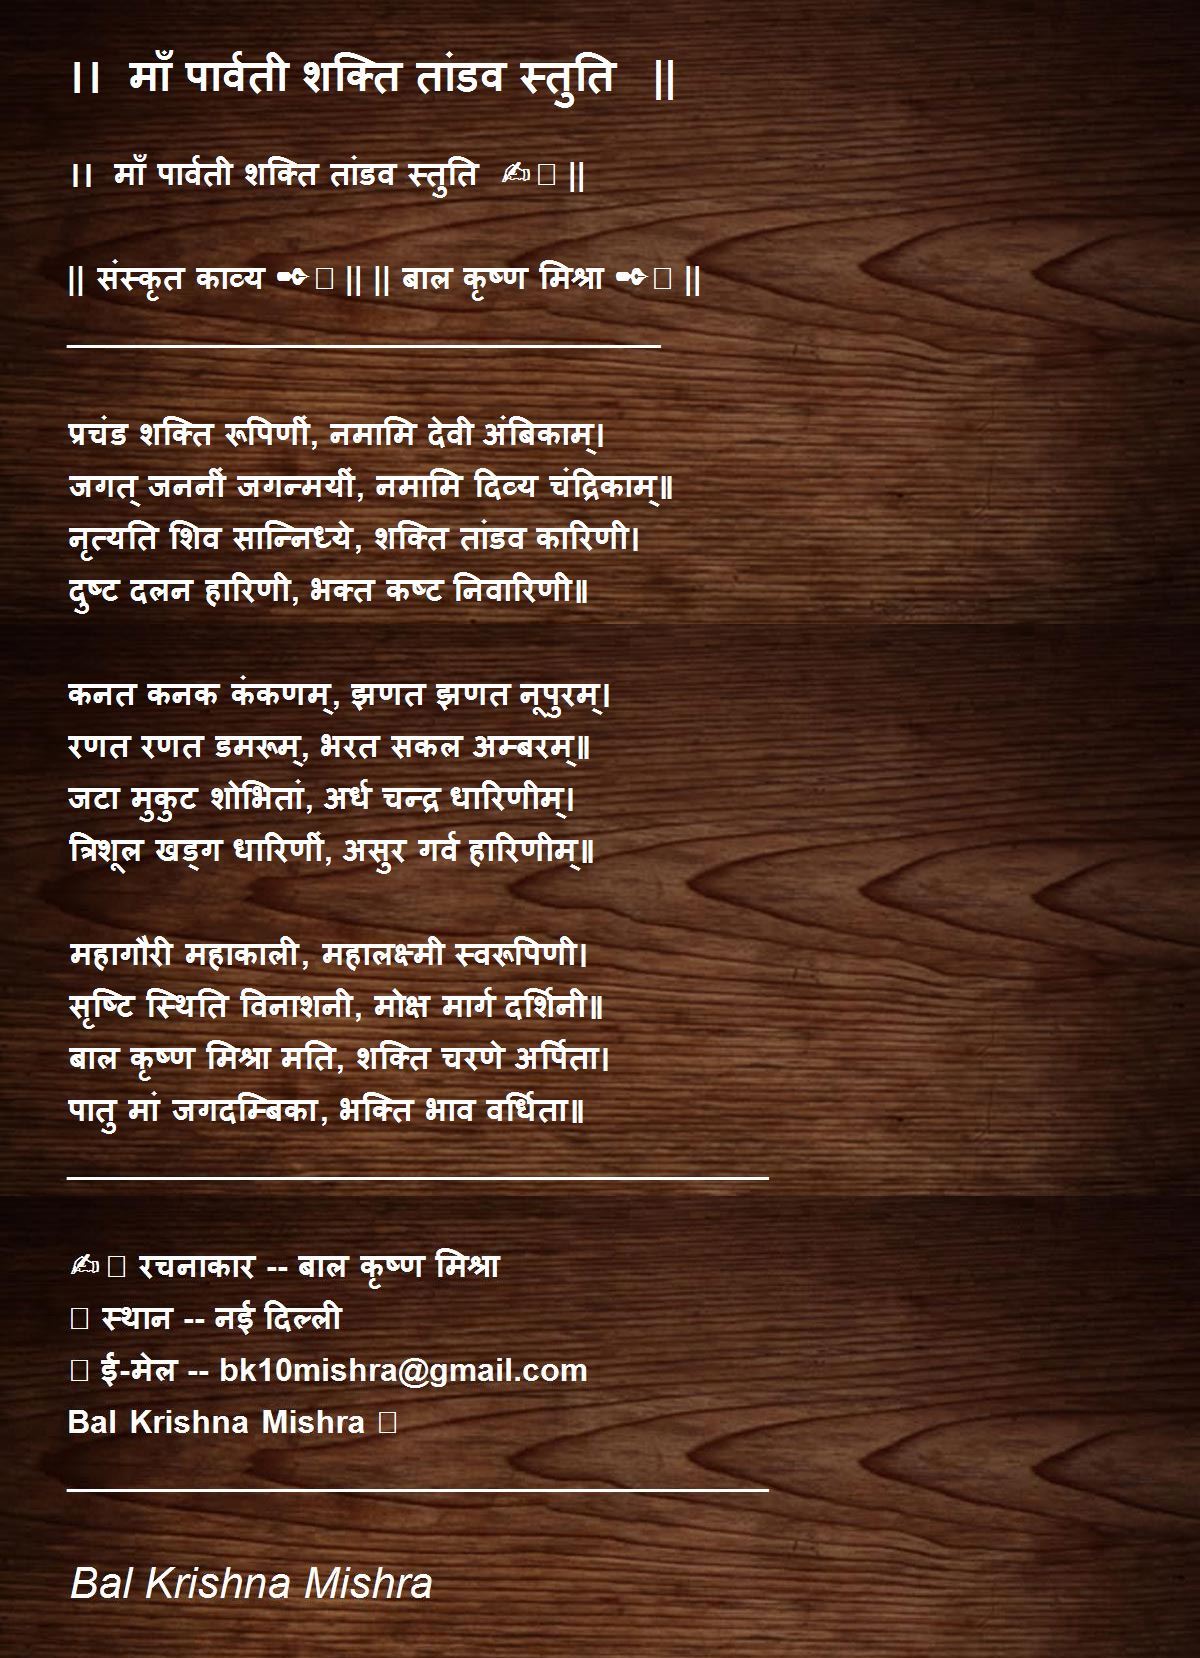 ।। माँ पार्वती शक्ति तांडव स्तुति ||
।। माँ पार्वती शक्ति तांडव स्तुति ✍️ ||
|| संस्कृत काव्य ✒️ || || बाल कृष्ण मिश्रा ✒️ ||
प्रचंड शक्ति रूपिणीं, नमामि देवी अंबिकाम्।
जगत् जननीं जगन्मयीं, नमामि दिव्य चंद्रिकाम्॥
नृत्यति शिव सान्निध्ये, शक्ति तांडव कारिणी।
दुष्ट दलन हारिणी, भक्त कष्ट निवारिणी॥
कनत कनक कंकणम्, झणत झणत नूपुरम्।
रणत रणत डमरूम्, भरत सकल अम्बरम्॥
जटा मुकुट शोभितां, अर्ध चन्द्र धारिणीम्।
त्रिशूल खड्ग धारिणीं, असुर गर्व हारिणीम्॥
महागौरी महाकाली, महालक्ष्मी स्वरूपिणी।
सृष्टि स्थिति विनाशनी, मोक्ष मार्ग दर्शिनी॥
बाल कृष्ण मिश्रा मति, शक्ति चरणे अर्पिता।
पातु मां जगदम्बिका, भक्ति भाव वर्धिता॥
✍️ रचनाकार -- बाल कृष्ण मिश्रा
स्थान -- नई दिल्ली
ई-मेल -- bk10mishra@gmail.com
Bal Krishna Mishra
Bal Krishna Mishra